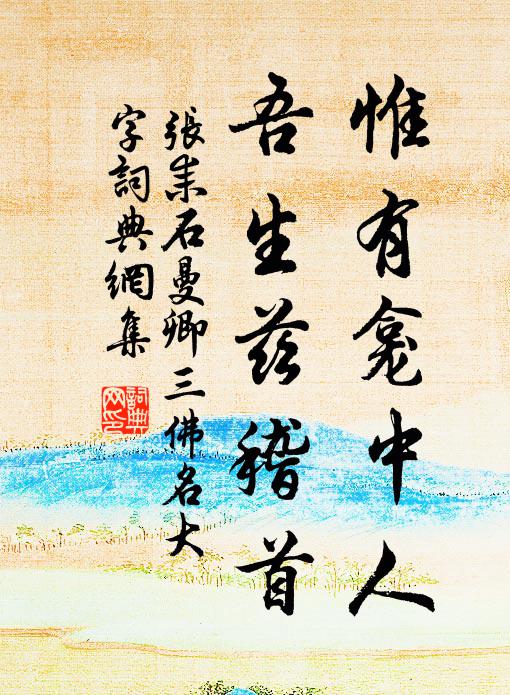 惟有龕中人
吾生茲稽首
張耒石曼卿三佛名大
字詞典網集
詞典
网印